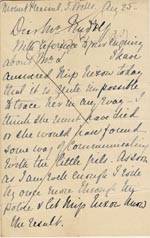 Mount Pleasant, T. Wells. Aug 25.
Dear Mr
With reference to your enquiry
about Miss I have
answered Miss Nixon today
that it is quite impossible
to trace her in any way - I
think she must have died
or she would have found
some way of communicating
with the little girls. As soon
as I am well enough I will
try once more through my
police & let Miss Nixon know
the result.